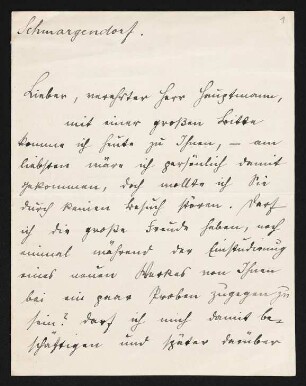 Schmargendorf.
1
Lieber, verehrter Herr Hauptmann,
mit einer großen Bitte
komme ich heute zu Ihnen, – am
liebsten wäre ich persönlich damit
gekommen, doch wollte ich Sie
durch keinen Besuch stören. Darf
ich die große Freude haben, noch
einmal während der Einstudierung
eines neuen Werkes von Ihnen
bei ein paar Proben zugegen zu
sein? Darf ich mich damit be-
schäftigen und später darüber